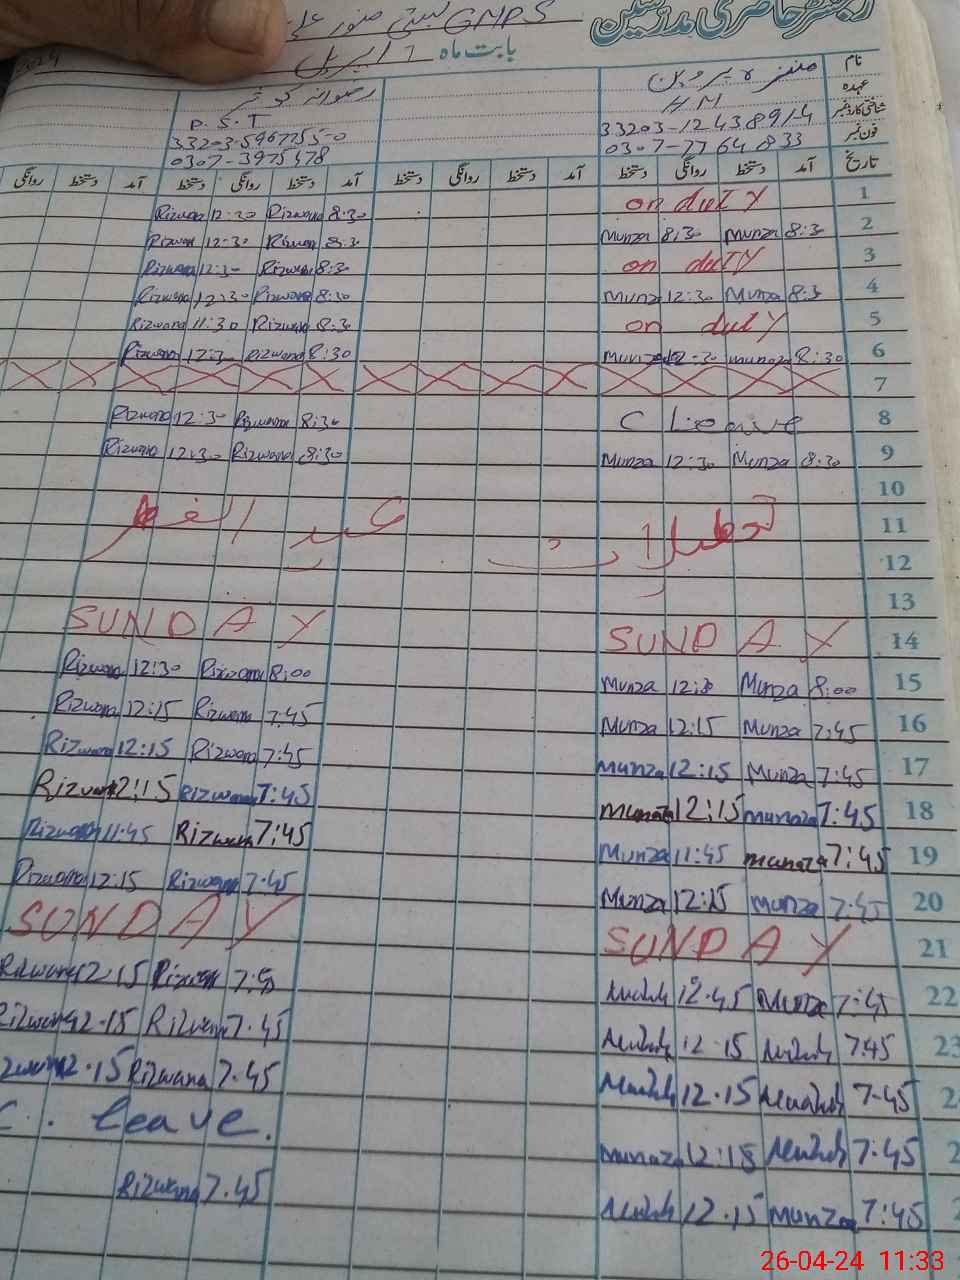 رجسٹر حاضری مدرسین
GMPS بستی منور علی
بابت ماہ اپریل
نام منزہ پروین رضوانہ کوثر
عہدہ HM P.S.T
شناختی کارڈ نمبر
فون نمبر 0307-7764833 0307-3975478
تاریخ آمد دستخط روانگی دستخط آمد دستخط روانگی دستخط آمد دستخط روانگی دستخط آمد دستخط روانگی
1 on duty 8:30 Rizwana 12:30 Rizwana
2 8:30 Munza 8:30 Munza 8:30 Rizwana 12:30 Rizwana
3 on duty 8:30 Rizwana 12:30 Rizwana
4 8:30 Munza 12:30 Munza 8:30 Rizwana 12:30 Rizwana
5 on duty 8:30 Rizwana 11:30 Rizwana
6 8:30 Munaza 12:30 Munza 8:30 Rizwana 12:30 Rizwana
7
8 C Leave 8:30 Rizwana 12:30 Rizwana
9 8:30 Munza 12:30 Munza 8:30 Rizwana 12:30 Rizwana
10
11 تعطیلات عید الفطر
12
13
14 SUNDAY SUNDAY
15 8:00 Munza 12:30 Munza 8:00 Rizwana 12:30 Rizwana
16 7:45 Munza 12:15 Munza 7:45 Rizwana 12:15 Rizwana
17 7:45 Munza 12:15 Munza 7:45 Rizwana 12:15 Rizwana
18 7:45 Munaza 12:15 Munaza 7:45 Rizwana 12:15 Rizwana
19 7:45 Munaza 11:45 Munza 7:45 Rizwana 11:45 Rizwana
20 7:45 Munza 12:15 Munza 7:45 Rizwana 12:15 Rizwana
21 SUNDAY SUNDAY
22 7:45 Munza 12.45 7:45 Rizwana 12.15 Rizwana
23 7.45 12.15 7.45 Rizwana 12.15 Rizwana
7.45 12.15 7.45 Rizwana 12.15
7.45 12:15 Munaza C. leave.
7:45 Munza 12.15 7.45 Rizwana
26-04-24 11:33